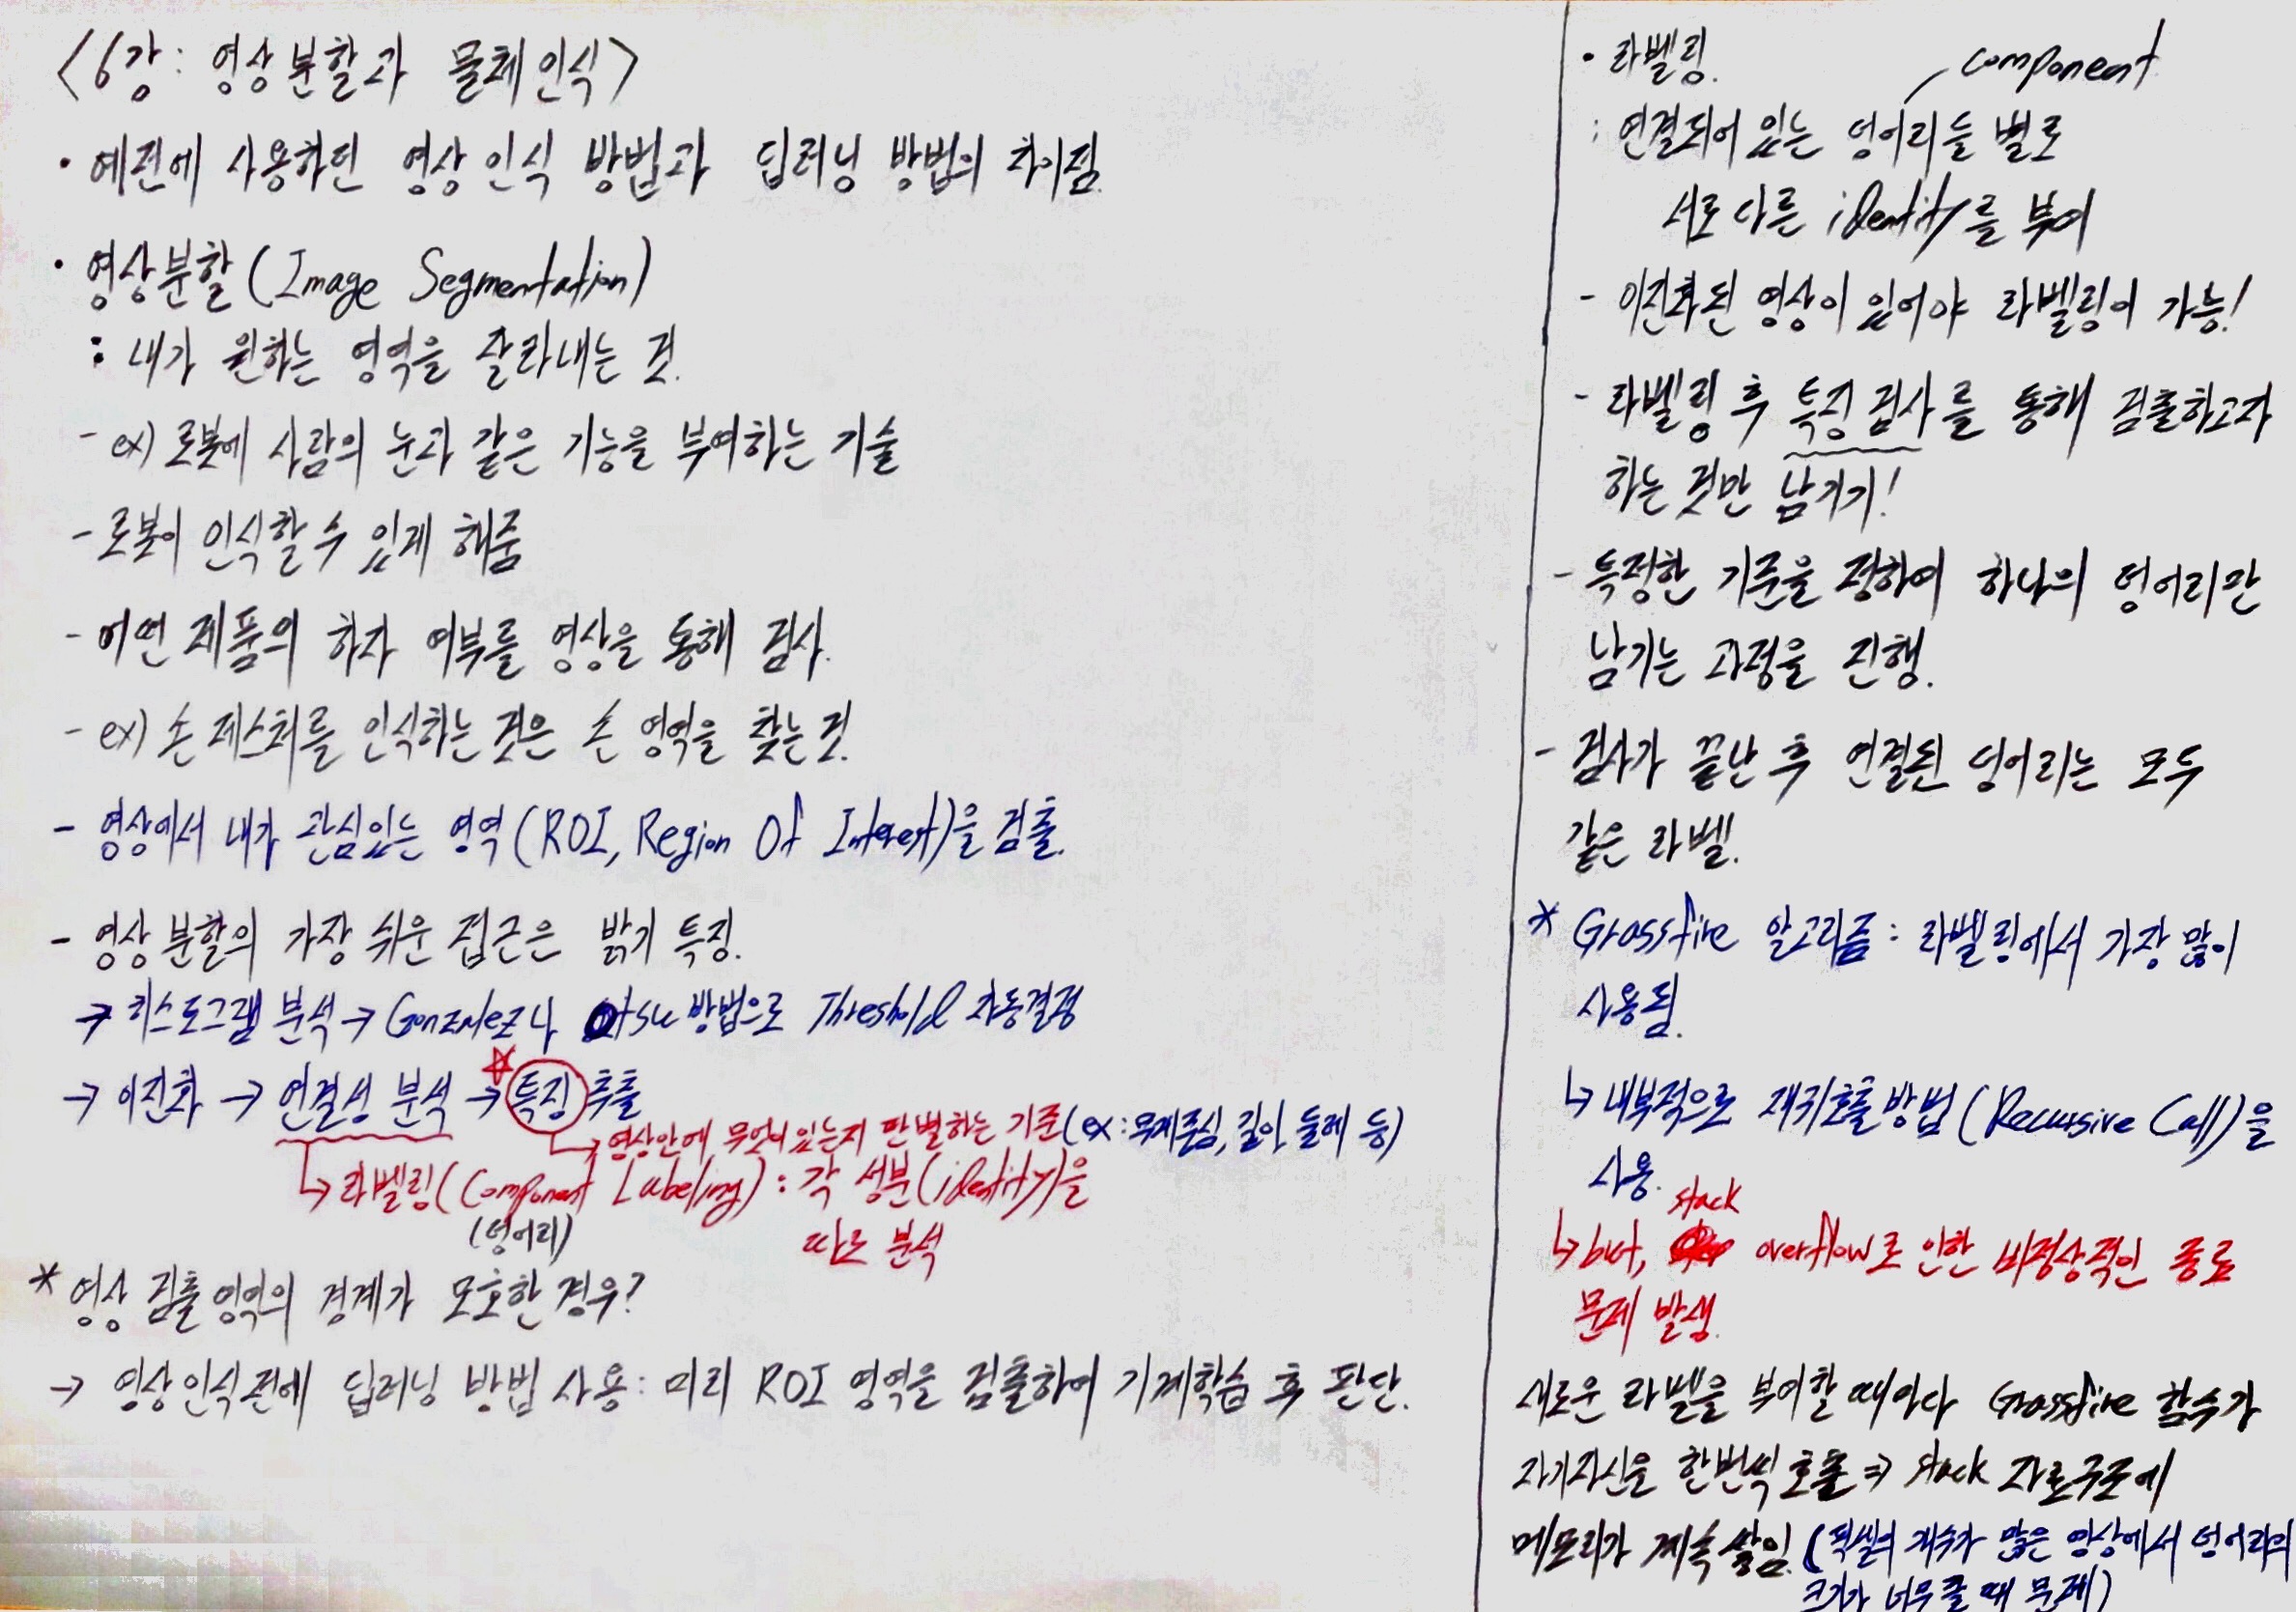 <6강: 영상분할과 물체인식>
• 예전에 사용하던 영상 인식 방법과 딥러닝 방법의 차이점.
• 영상분할(Image Segmentation)
: 내가 원하는 영역을 잘라내는 것.
- ex) 로봇에 사람의 눈과 같은 기능을 부여하는 기술
- 로봇이 인식할 수 있게 해줌
- 어떤 제품의 하자 여부를 영상을 통해 검사.
- ex) 손 제스처를 인식하는 것은 손 영역을 찾는 것.
- 영상에서 내가 관심있는 영역(ROI, Region Of Interest)을 검출.
- 영상 분할의 가장 쉬운 접근은 밝기 특징.
→ 히스토그램 분석 → Gonzalez나 Otsu 방법으로 Threshold 자동결정
→ 이진화 → 연결성 분석 → ☆특징 추출
↳ 영상안에 무엇이 있는지 판별하는 기준(ex: 무게중심, 길이, 둘레 등)
↳ 라벨링(Component Labeling): 각 성분(identity)을
(덩어리)
따로 분석
* 영상 검출 영역의 경계가 모호한 경우?
→ 영상인식전에 딥러닝 방법 사용: 미리 ROI 영역을 검출하여 기계학습 후 판단.
• 라벨링.
component
: 연결되어 있는 덩어리들 별로
서로 다른 identity를 부여
- 이진화된 영상이 있어야 라벨링이 가능!
- 라벨링 후 특징 검사를 통해 검출하고자
하는 것만 남기기!
- 특정한 기준을 정하여 하나의 덩어리만
남기는 과정을 진행.
- 검사가 끝난 후 연결된 덩어리는 모두
같은 라벨.
* Grassfire 알고리즘: 라벨링에서 가장 많이
사용됨.
↳ 내부적으로 재귀호출 방법(Recursive Call)을
사용.
stack
↳ but, overflow로 인한 비정상적인 종료
문제 발생.
새로운 라벨을 부여할 때마다 Grassfire 함수가
자기자신을 한번씩 호출 ⇒ stack 자료구조에
메모리가 계속 쌓임. (픽셀의 개수가 많은 영상에서 덩어리의
크기가 너무 클 때 문제)